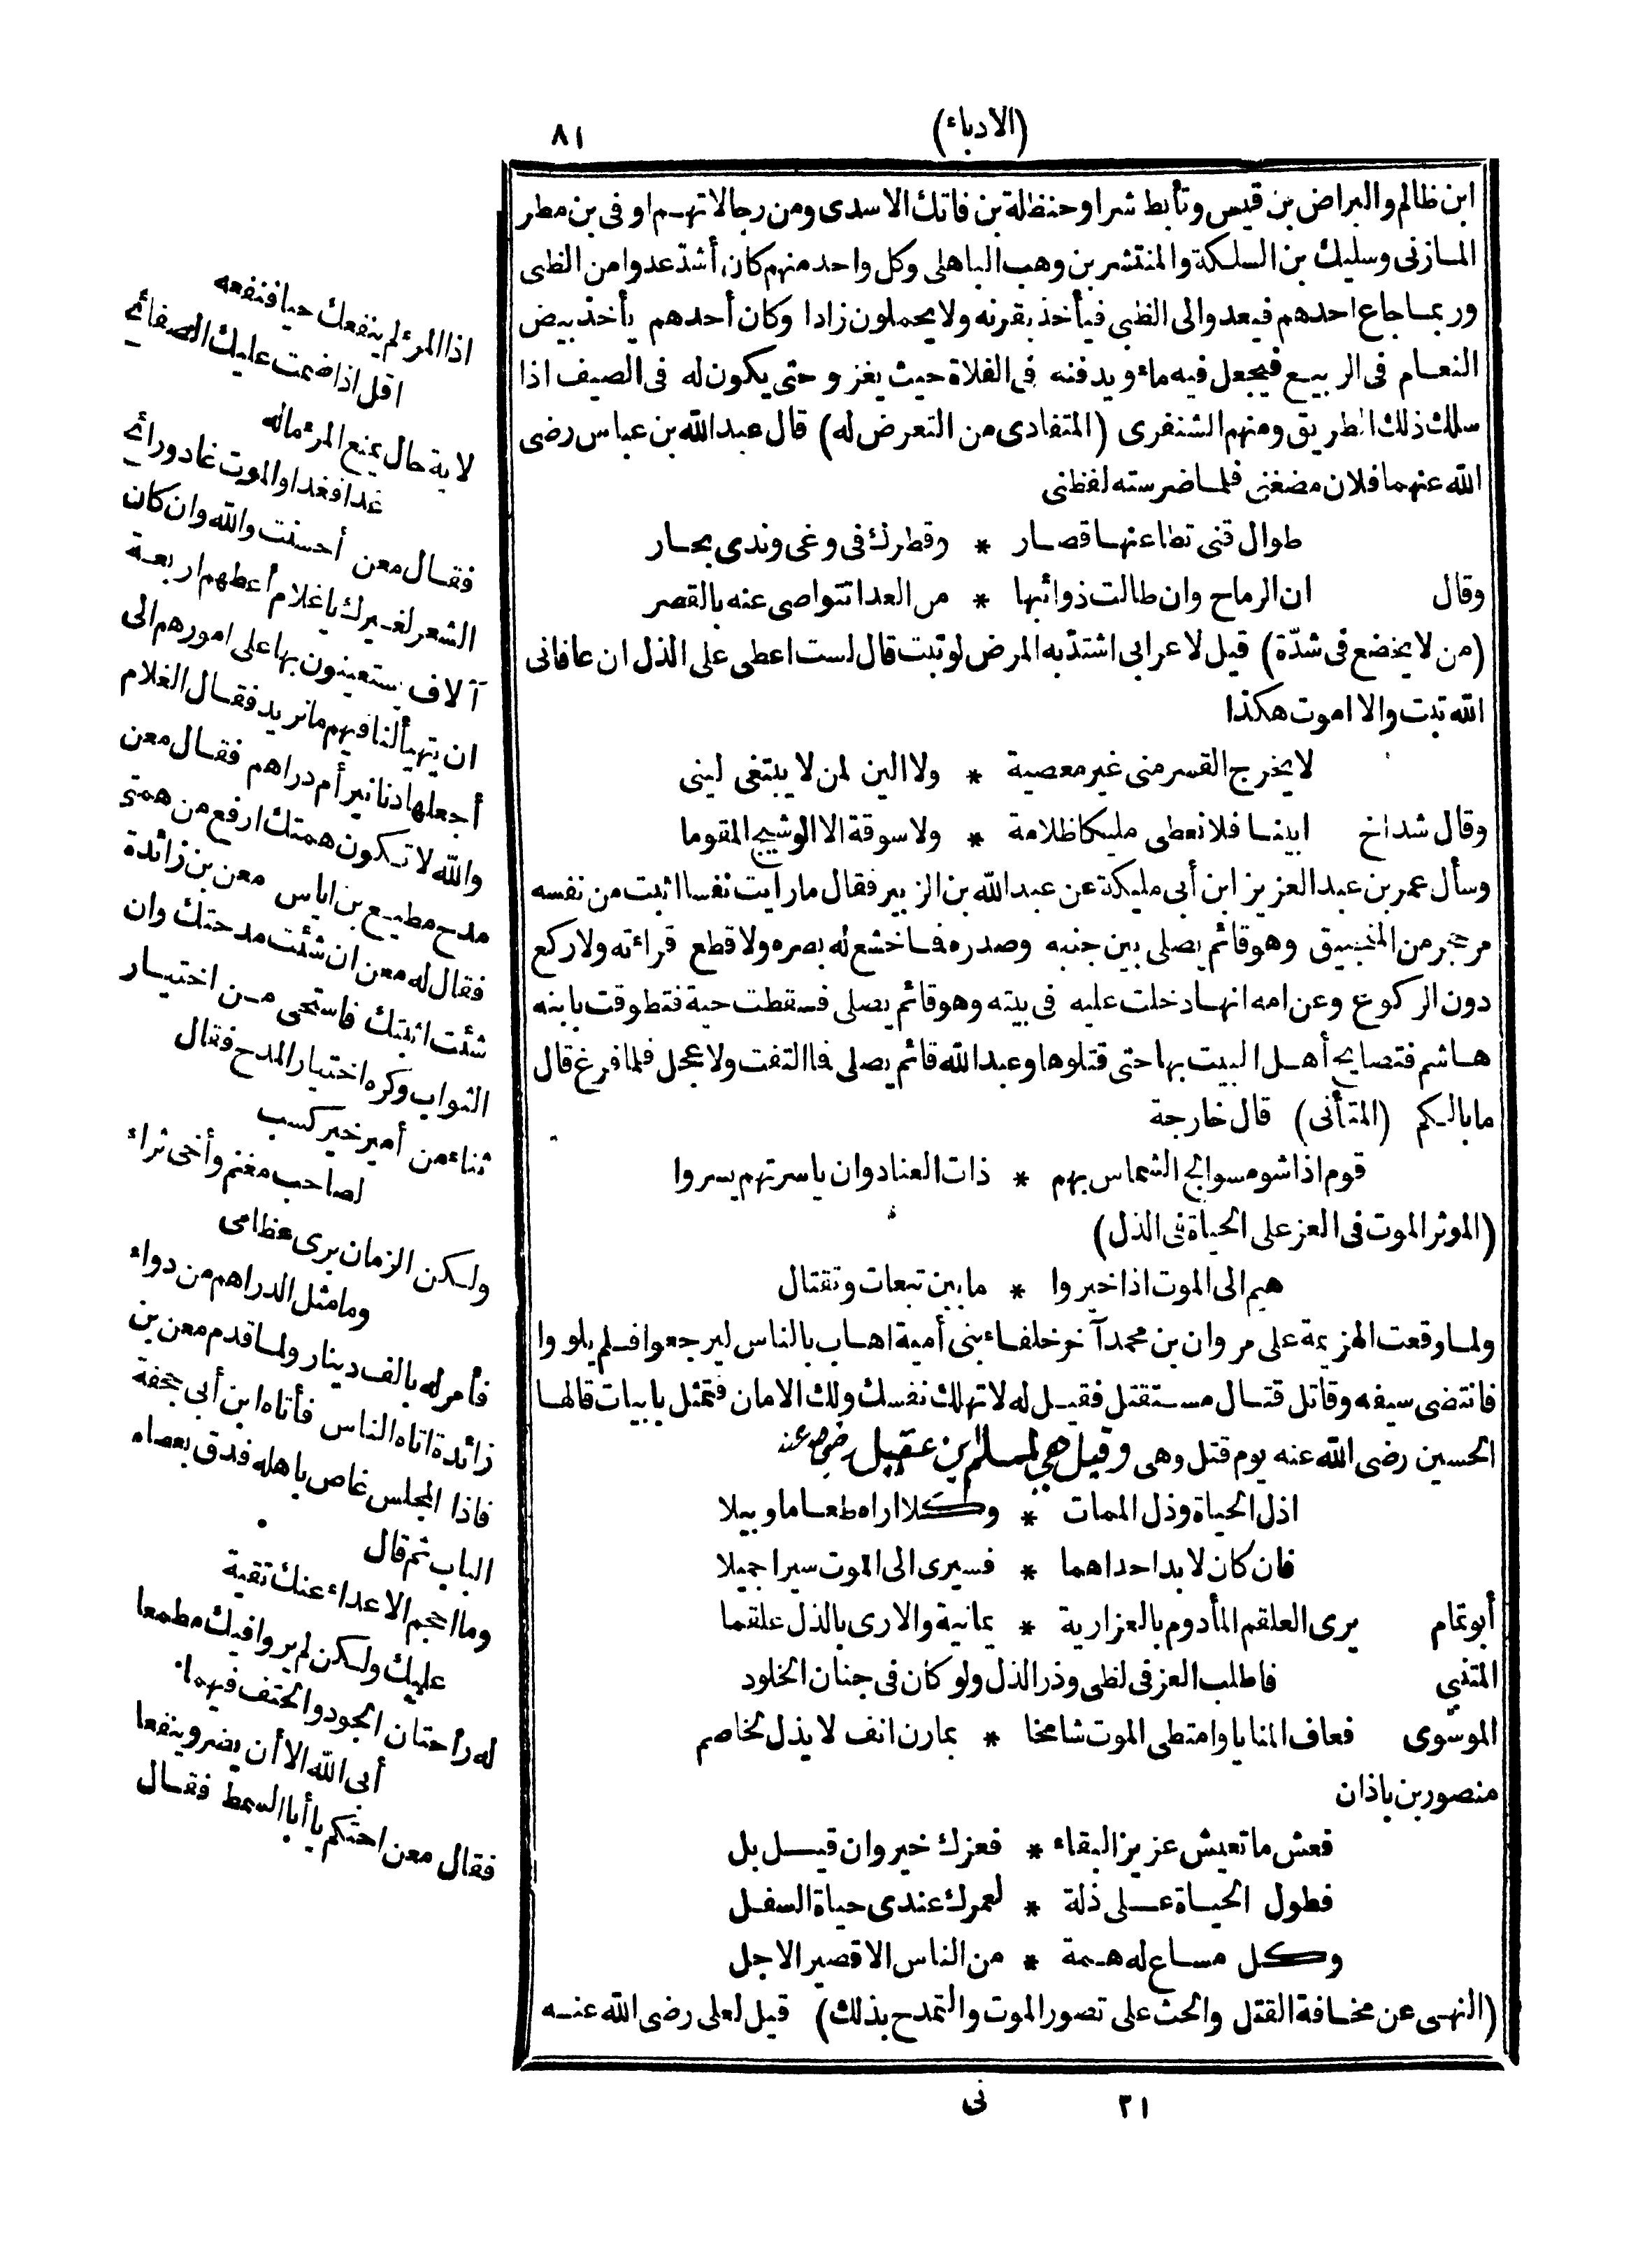 (الادباء)
٨١
ابن ظالم والبراض بن قيس وتأبط شرا وحنظلة بن فاتك الاسدى ومن رجالاتهم اوفى بن مطر
المازنى وسليك بن السلكة والمنتشر بن وهب الباهلى وكل واحد منهم كان أشد عدوا من الظبى
وربما جاع احدهم فيعدو الى الظبى فيأخذ بقرنه ولا يحملون زادا وكان أحدهم يأخذ بيض
النعام فى الربيع فيجعل فيه ماء ويدفنه فى الفلاة حيث يغزو حتى يكون له فى الصيف اذا
سلك ذلك الطريق ومنهم الشنفرى (المتفادى من التعرض له) قال عبد الله بن عباس رضى
الله عنهما فلان مضغنى فلما ضرسته لفظنى
طوال قنى تطاعنها قصار * وقطرك فى وغى وندى بحار
وقال ان الرماح وان طالت ذوائبها * من العدا تتواصى عنه بالقصر
(من لا يخضع فى شدّة) قيل لاعرابى اشتدّ به المرض لو تبت قال لست اعطى على الذل ان عافانى
الله تبت والا اموت هكذا
لا يخرج القسر منى غير معصية * ولا الين لمن لا يبتغى لينى
وقال شداخ ابينا فلا نعطى مليكا ظلامة * ولا سوقة الا الوشيج المقوما
وسأل عمر بن عبد العزيز ابن أبى مليكة عن عبد الله بن الزبير فقال ما رأيت نفسا اثبت من نفسه
مر حجر من المنجنيق وهو قائم يصلى بين جنبه وصدره فما خشع له بصره ولا قطع قراءته ولا ركع
دون الركوع وعن امه انها دخلت عليه فى بيته وهو قائم يصلى فسقطت حية فتطوقت بابنه
هاشم فتصايح أهل البيت بها حتى قتلوها وعبد الله قائم يصلى فما التفت ولا عجل فلما فرغ قال
ما بالكم (المتأنى) قال خارجة
قوم اذا شومسوا لج الشماس بهم * ذات العناد وان ياسرتهم يسروا
(الموثر الموت فى العز على الحياة فى الذل)
هيم الى الموت اذا خيروا * ما بين تبعات وتقتال
ولما وقعت الهزيمة على مروان بن محمد آخر خلفاء بنى أمية اهاب بالناس ليرجعوا فلم يلووا
فانتضى سيفه وقاتل قتال مستقتل فقيل له لا تهلك نفسك ولك الامان فتمثل بابيات قالها
الحسين رضى الله عنه يوم قتل وهى وقيل هي لمسلم ابن عقيل رضي عنه
اذل الحياة وذل الممات * وكلا اراه طعاما وبيلا
فان كان لا بد احداهما * فسيرى الى الموت سيرا جميلا
أبو تمام يرى العلقم المأدوم بالعز اربة * يمانية والارى بالذل علقما
المتنبي فاطلب العز فى لظى وذر الذل ولو كان فى جنان الخلود
الموسوى فعاف المنايا وامتطى الموت شامخا * بمارن انف لا يذل لخاصم
منصور بن باذان
فعش ما تعيش عزيز البقاء * فعزك خير وان قيل بل
فطول الحياة على ذلة * لعمرك عندى حياة السفل
وكل مساع له همة * من الناس الا قصير الاجل
(النهى عن مخافة القتل والحث على تصور الموت والتمدح بذلك) قيل لعلى رضى الله عنه
٢١
نى
اذا المرء لم ينفعك حيا فنفعه
اقل اذا ضمت عليك الصفائح
لاية حال يمنع المرء ماله
غدا فغدا والموت غاد ورائح
فقال معن أحسنت والله وان كان
الشعر لغيرك يا غلام أعطهم اربعة
آلاف يستعينون بها على امورهم الى
ان يتهيأ لنا فيهم ما نريد فقال الغلام
أجعلها دنانير أم دراهم فقال معن
والله لا تكون همتك ارفع من همتى
مدح مطيع بن اياس معن بن زائدة
فقال له معن ان شئت مدحتك وان
شئت اثبتك فاستحى من اختيار
الثواب وكره اختيار المدح فقال
ثناء من أمير خير كسب
لصاحب مغنم وأخى ثراء
ولكن الزمان برى عظامى
وما مثل الدراهم من دواء
فأمر له بالف دينار ولما قدم معن بن
زائدة اتاه الناس فأتاه ابن أبى حجفة
فاذا المجلس غاص باهله فدق بعصاه
الباب ثم قال
وما احجم الاعداء عنك تقية
عليك ولكن لم يروا فيك مطمعا
له رأحتان الجود والحتف فيهما
أبى الله الا أن يضر وينفعا
فقال معن احتكم يا أبا السمط فقال